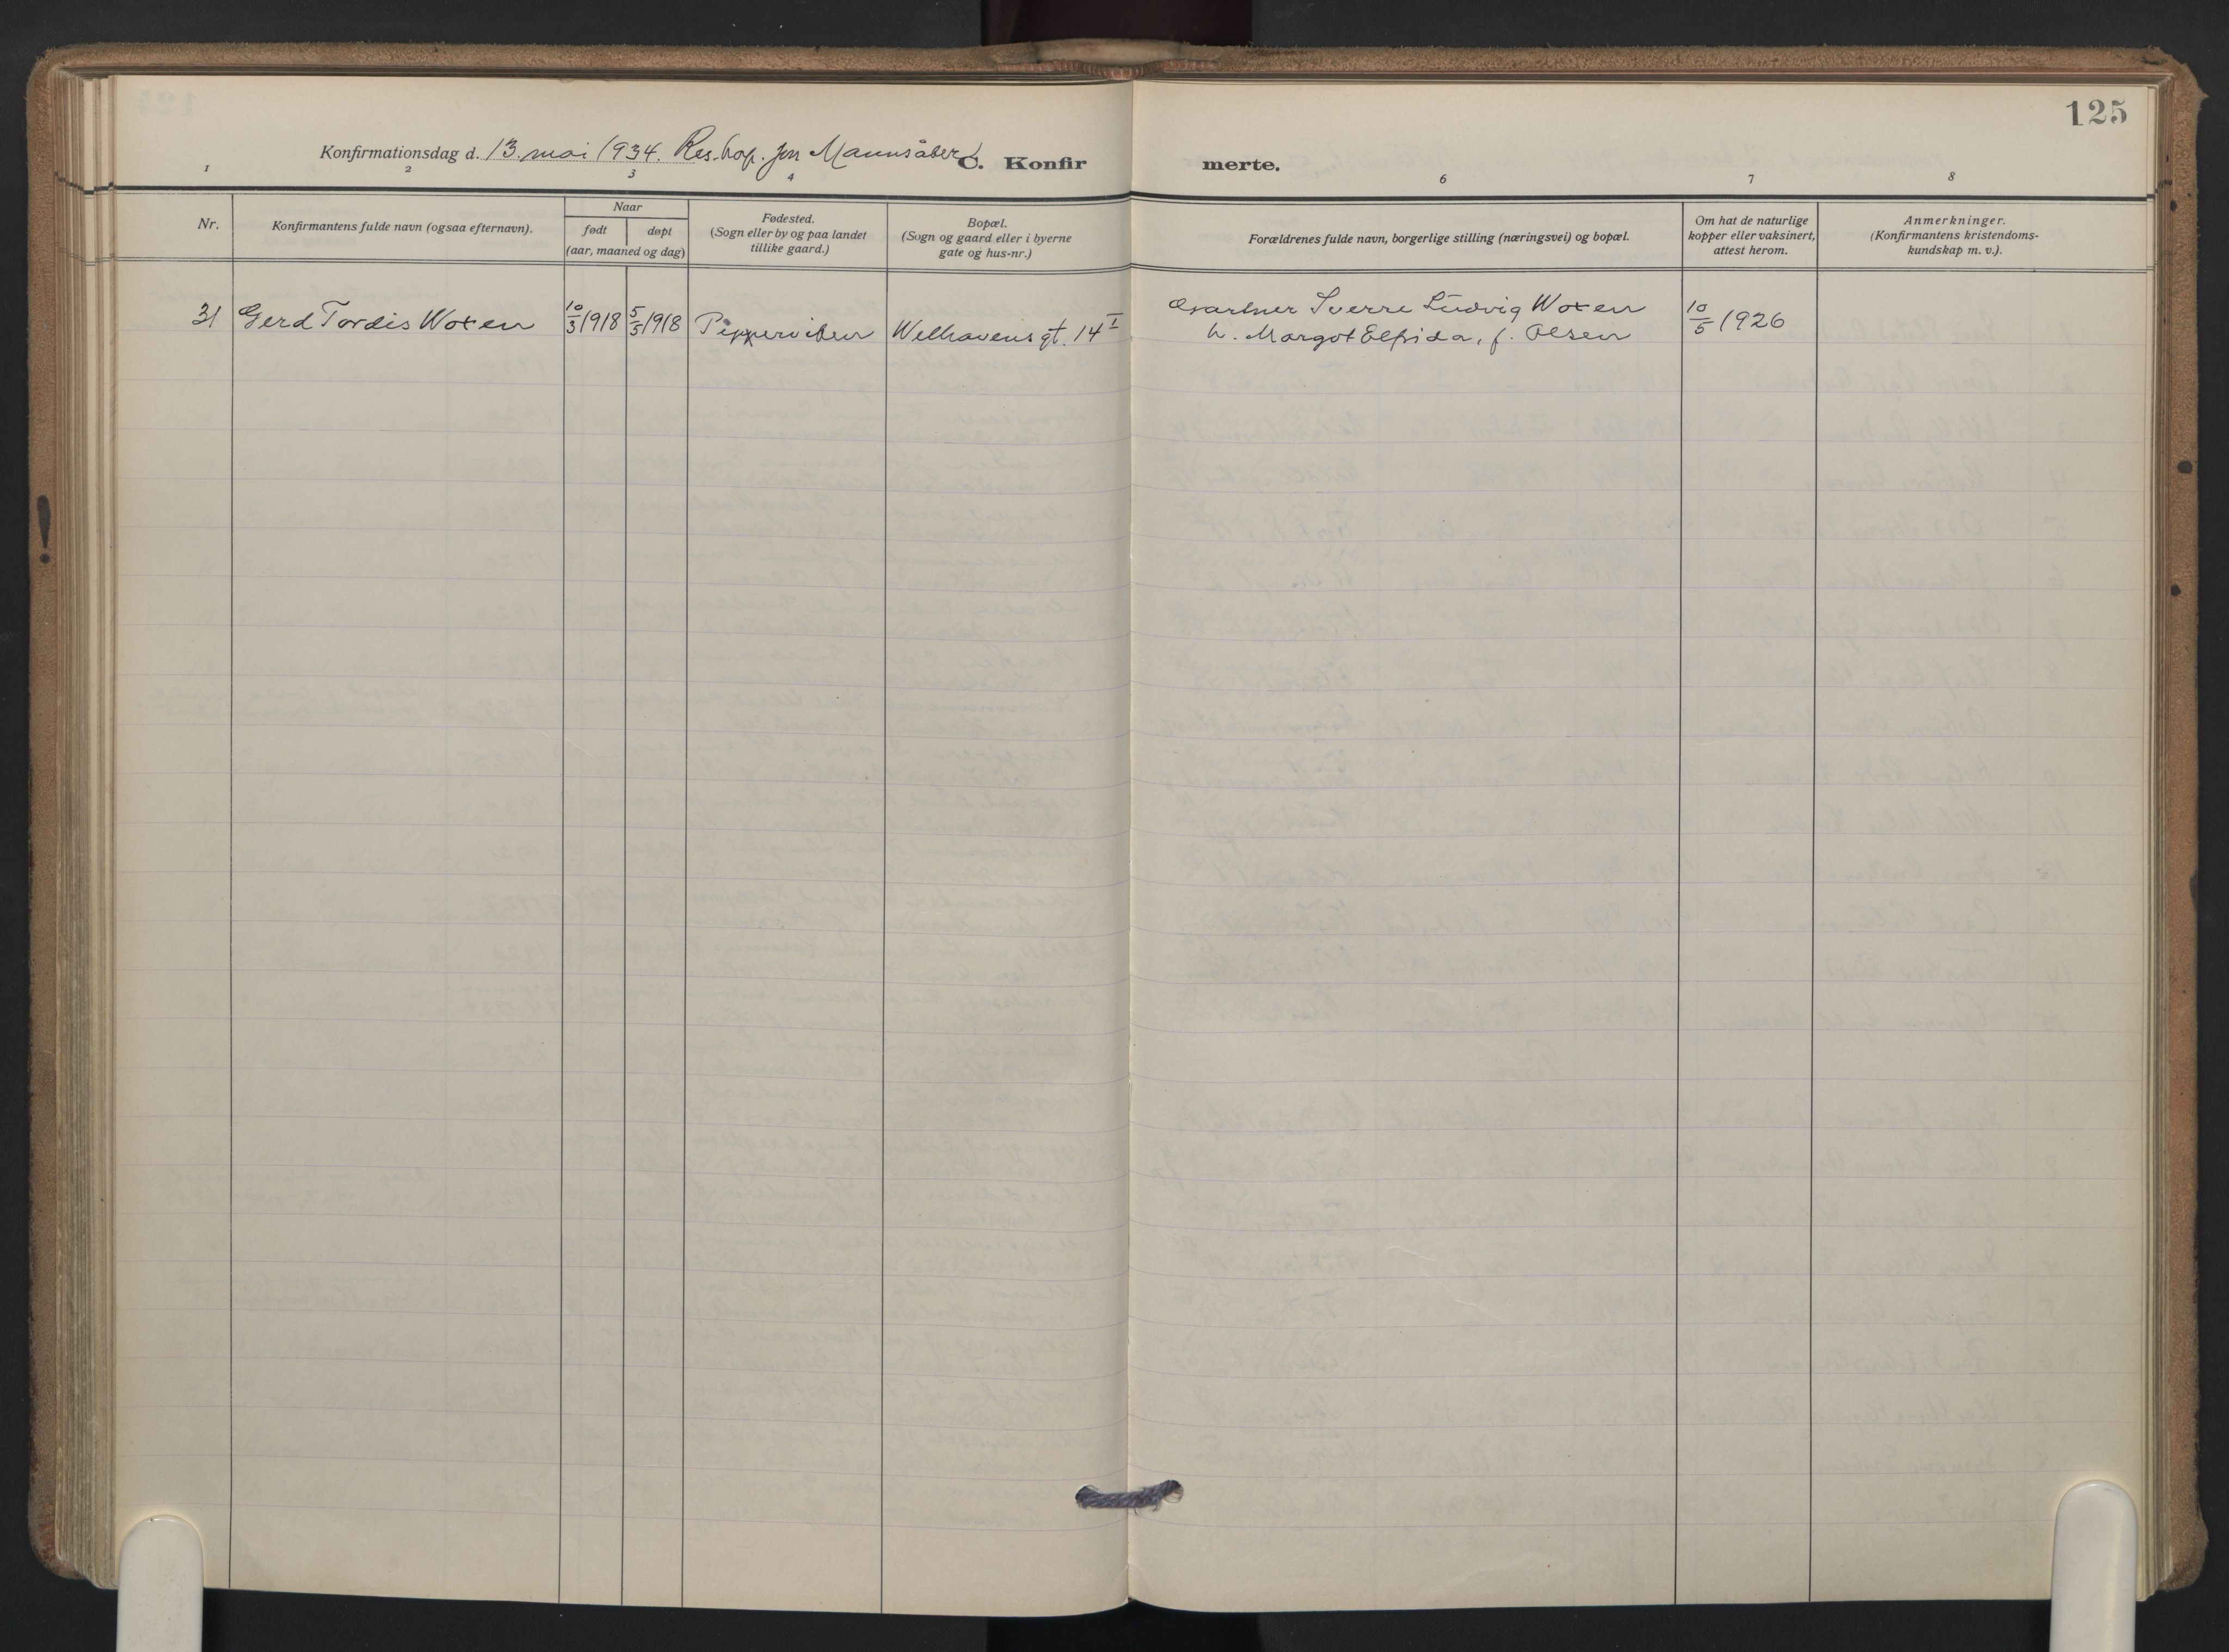 125
Konfirmationsdag d. 13. mai 1934. Res. kap. Jon Mannsåker
C. Konfirmerte.
1 2 3 4 6 7 8
Nr.
Konfirmantens fulde navn (ogsaa efternavn).
Naar
født døpt
(aar, maaned og dag)
Fødested.
(Sogn eller by og paa landet
tillike gaard.)
Bopæl.
(Sogn og gaard eller i byerne
gate og hus-nr.)
Forældrenes fulde navn, borgerlige stilling (næringsvei) og bopæl.
Om hat de naturlige
kopper eller vaksinert,
attest herom.
Anmerkninger.
(Konfirmantens kristendoms-
kundskap m. v.).
31 Gerd Tordis Woxen 10/3 1918 5/5 1918 Pipperviken Welhavens gt. 14 I
Gartner Sverre Ludvig Woxen
h. Margot Elfrida, f. Olsen
10/5 1926